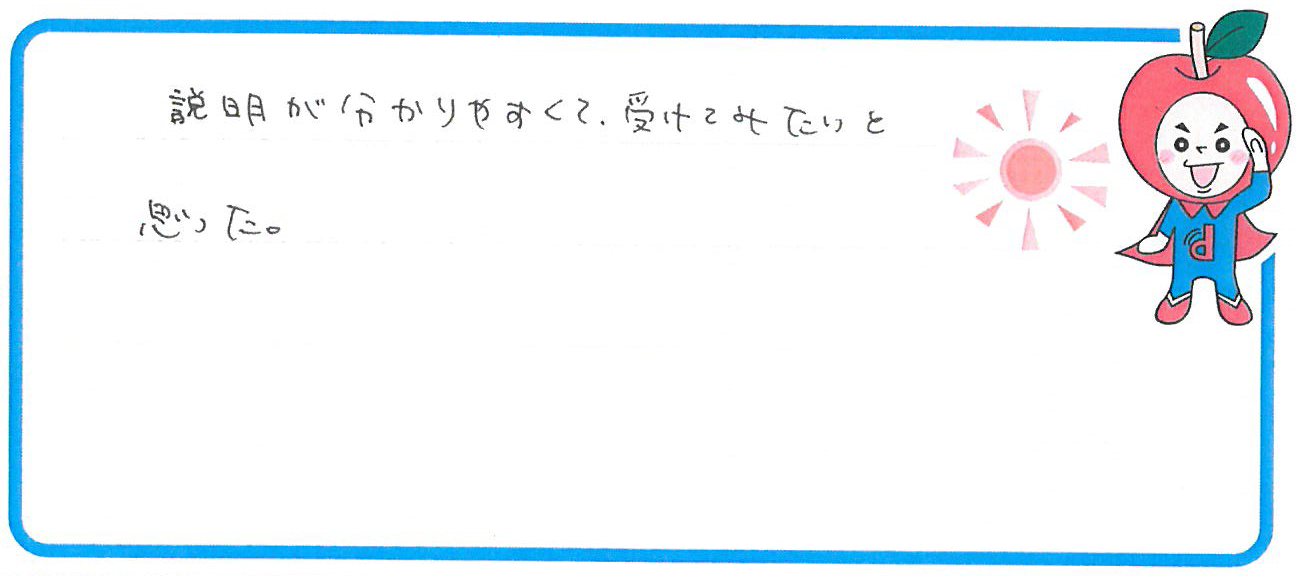 説明が分かりやすくて、受けてみたいと
思った。